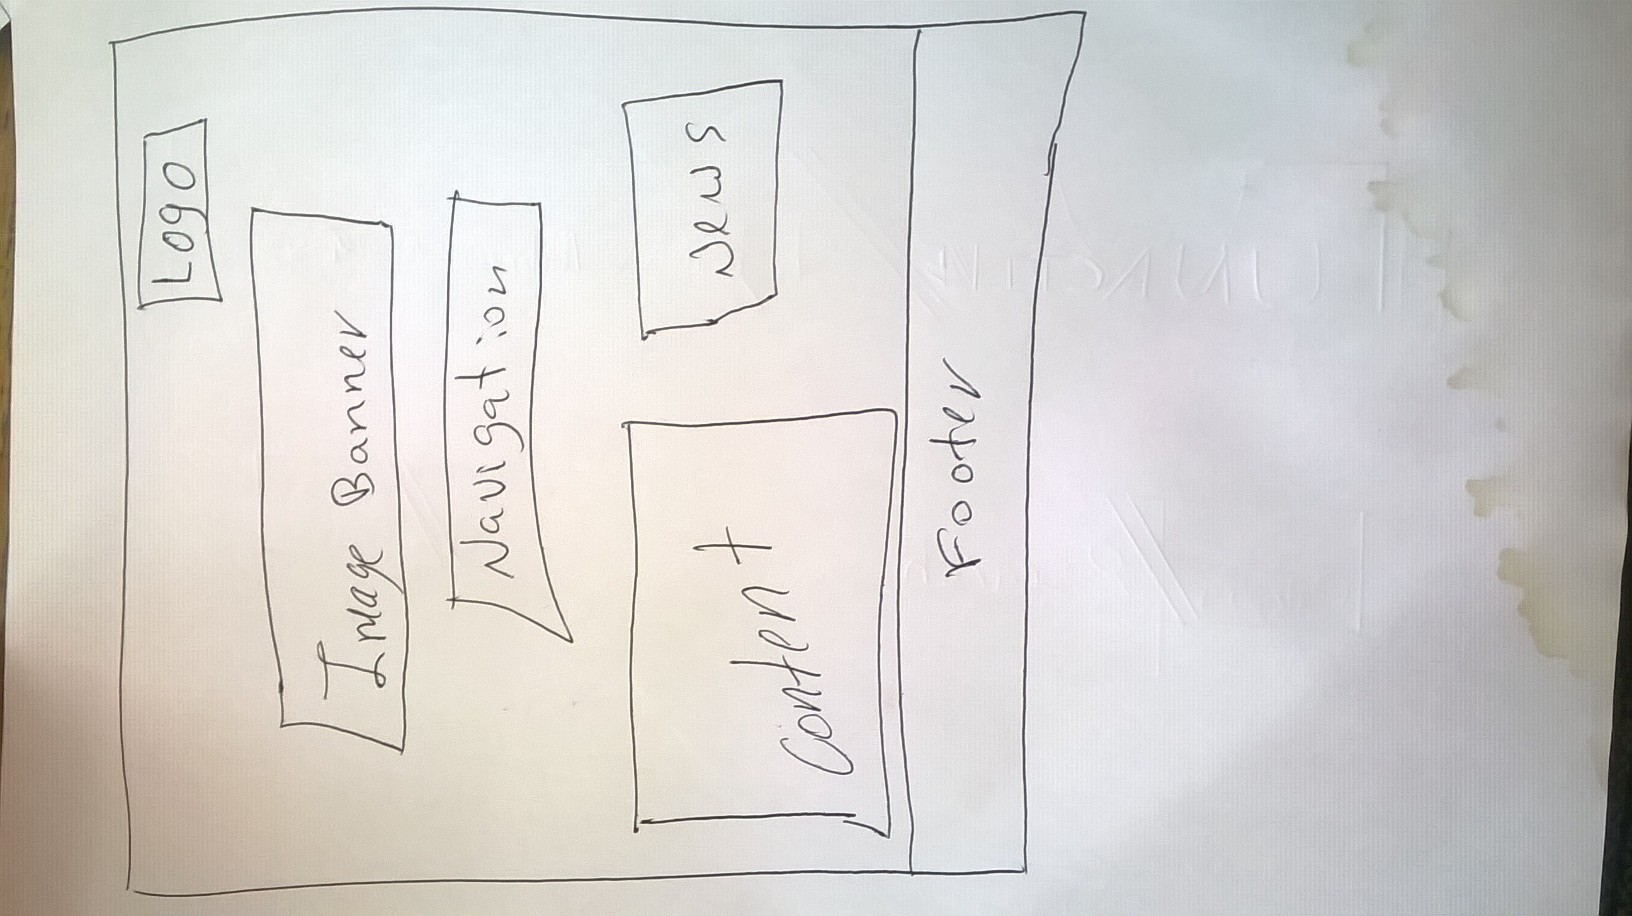 Logo
Image Banner
Navigation
Content
News
Footer